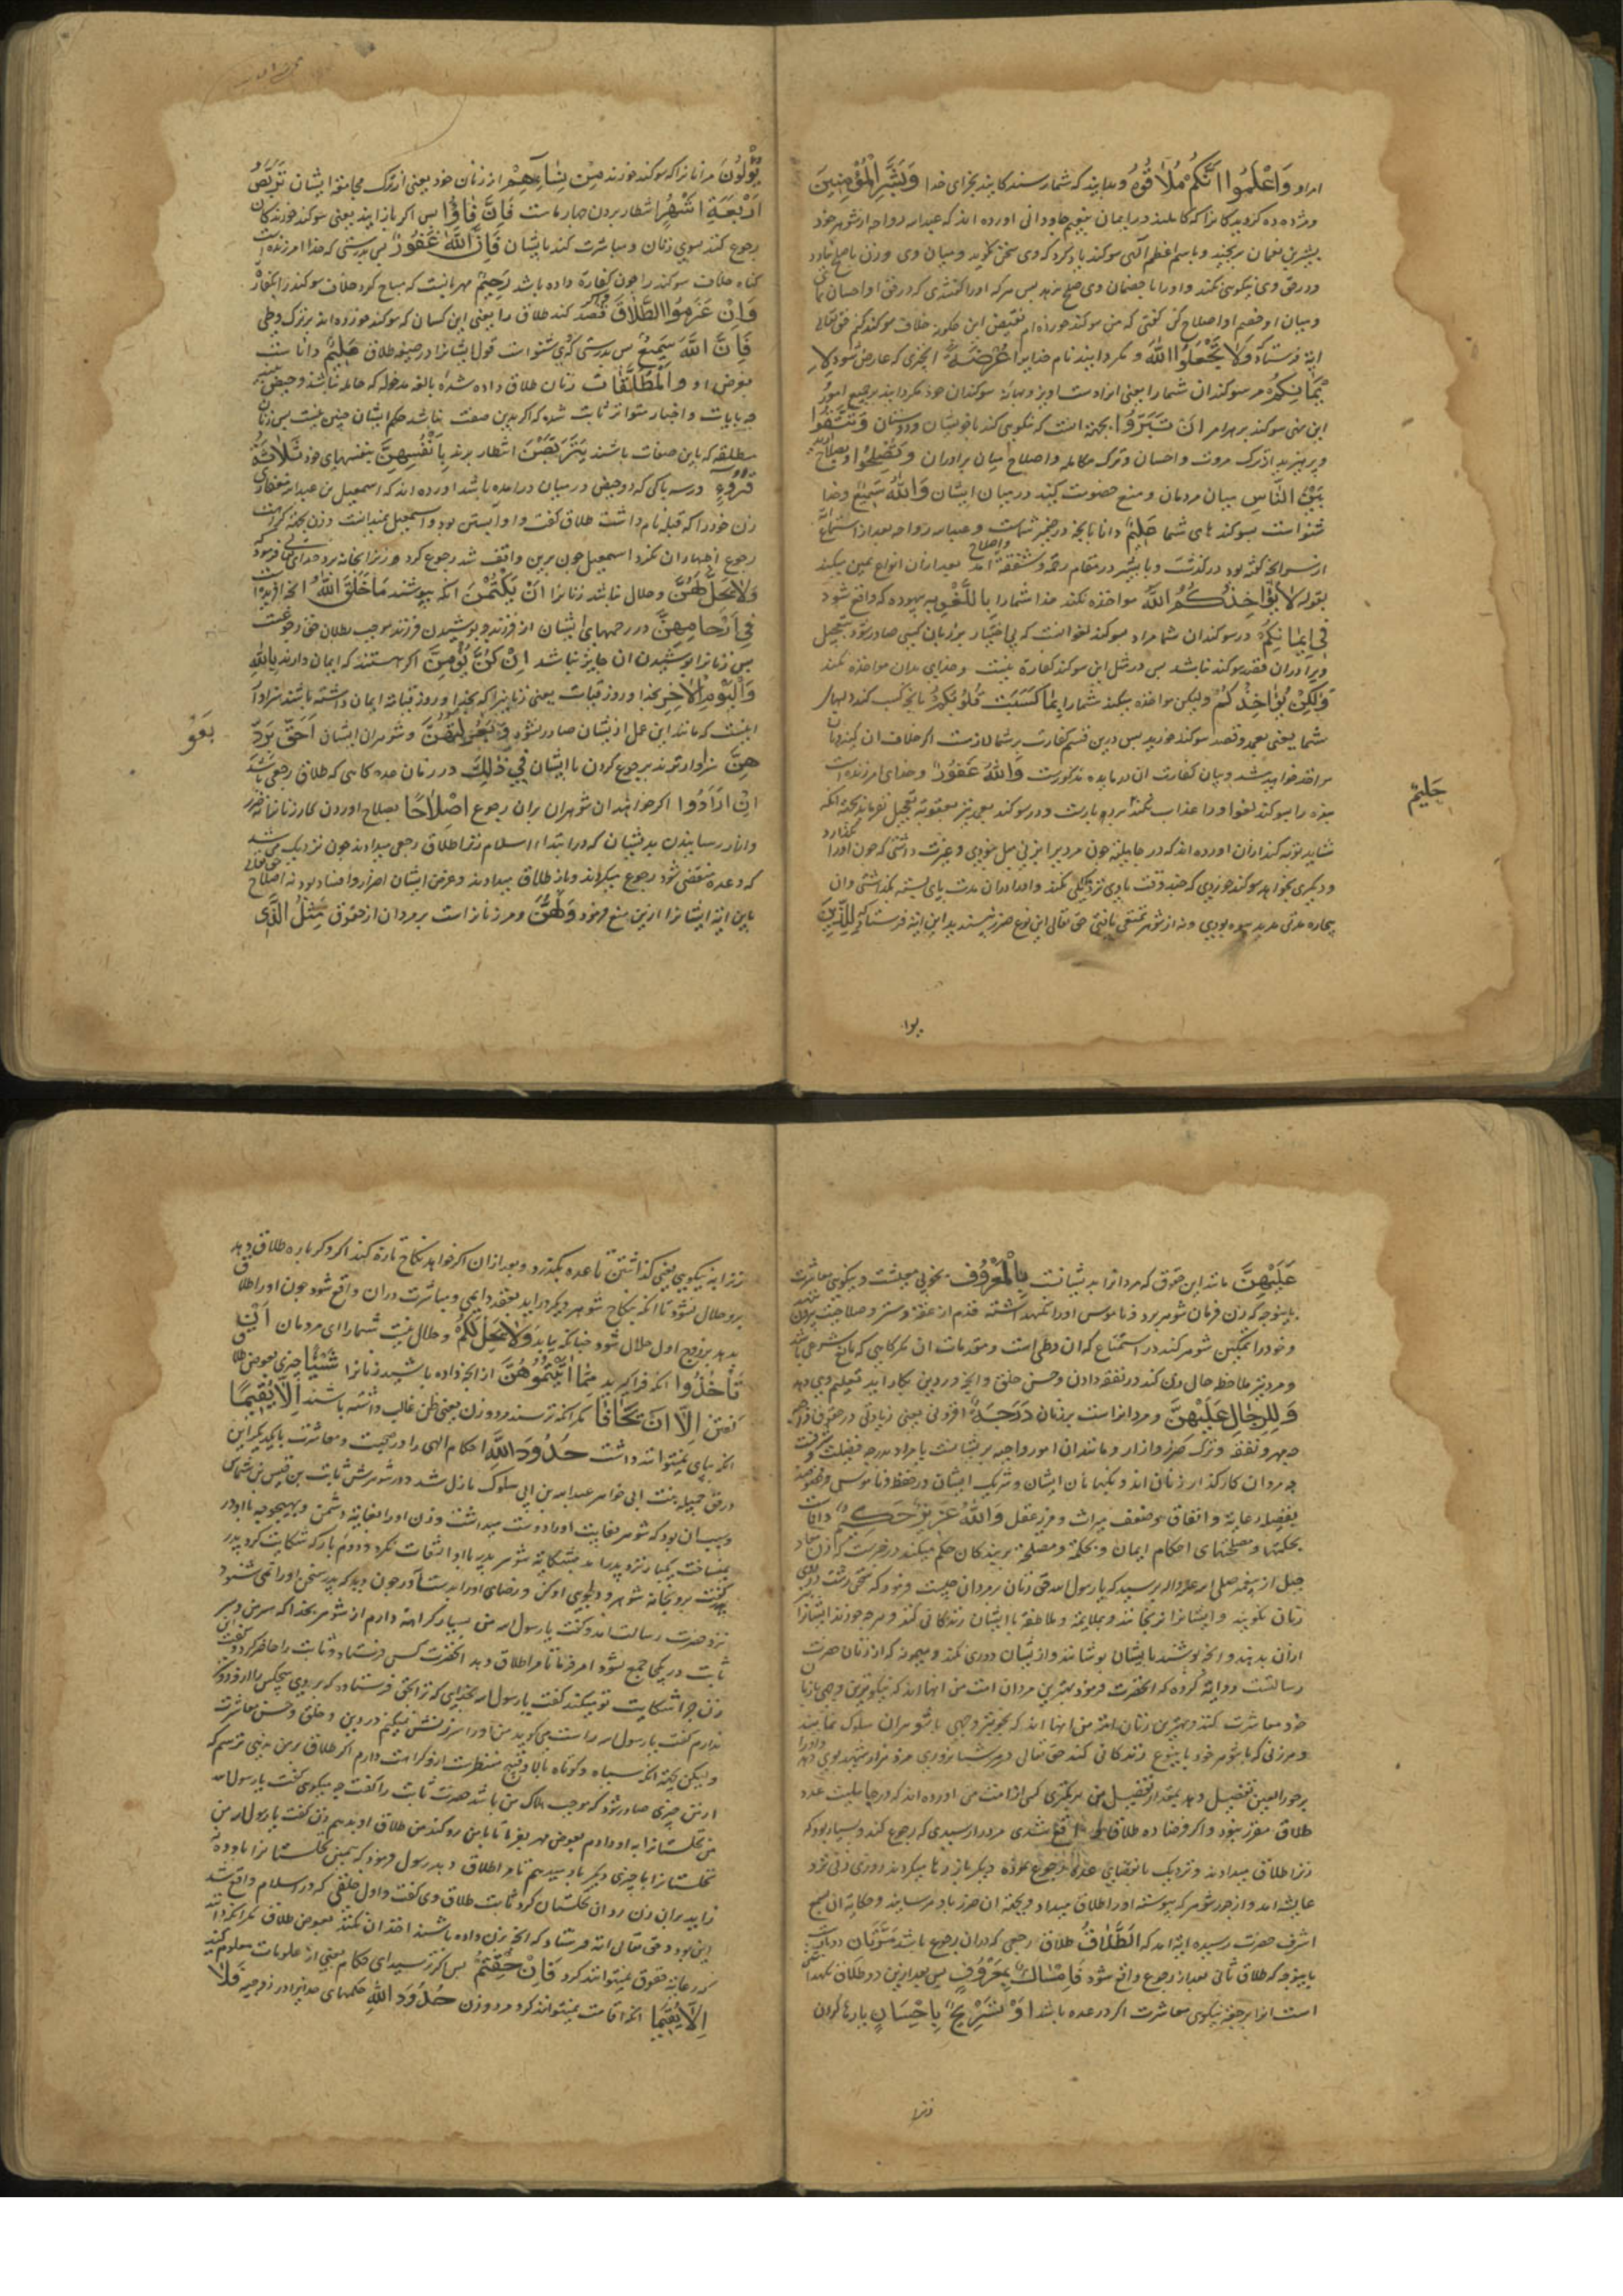 امراو وَاعْلَمُوا اَنَّكُمْ مُلَاقُوهُ وبدانید که شما رسندگانید بجزای خدا وَبَشِّرِ الْمُؤْمِنِينَ
ومژده ده گرویدگانرا که کاملند در ایمان بنعیم جاودانی اورده اند که عبداله رواحه از شوهر خود
بشیر بن نعمان برنجید وباسم اعظم الهی سوکند یاد کرد که وی سخن نکوید ومیان وی وزن باصلاح نیاورد
ودر حق وی نیکویی نکند واورا با خصمان وی صلح ندهد پس هرکه اورا کفتندی که در حق او احسان نمای
ومیان او وخصم او اصلاح کن کفتی که من سوکند خورده ام نقیض این چکونه خلاف سوکند کنم حق تعالی
ایة فرستاد وَلَا تَجْعَلُوا اللَّهَ ومکردانید نام خدایرا عُرْضَةً انچیزی که عارض شود لِ
اَيْمَانِكُمْ مر سوکندان شما را یعنی انرا دست اویز وبهانهٔ سوکندان خود مکردانید برجمیع امور
این نهی سوکند بر هر امر اَنْ تَبَرُّوا بجهة انست که نیکویی کنید با خویشان ودوستان وَتَتَّقُوا
وپرهیزید از ترک مروت واحسان وترک مکالمه واصلاح میان برادران وَتُصْلِحُوا وبصلاح ارید
بَيْنَ النَّاسِ میان مردمان ومنع خصومت کنید در میان ایشان وَاللَّهُ سَمِيعٌ وخدا
شنواست بسوکندهای شما عَلِيمٌ دانا بانچه در ضمیر شماست وعبداله رواحه بعد از استماع
ازسر انچه کفته بود در کذشت وبا بشیر در مقام رحم وشفقت واصلاح امد بعد از ان انواع یمین میکند
بقوله لَا يُؤَاخِذُكُمُ اللَّهُ مواخذه نکند خدا شمارا بِاللَّغْوِ به بیهوده که واقع شود
فِي اَيْمَانِكُمْ در سوکندان شما مراد سوکند لغو انست که بی اختیار بر زبان کسی صادر شود بتعجیل
ویرا دران قصد سوکند نباشد پس در مثل این سوکند کفارة نیست وخدای بدان مواخذه نکند
وَلَكِنْ يُؤَاخِذُكُمْ ولیکن مواخذه میکند شمارا بِمَا كَسَبَتْ قُلُوبُكُمْ بانچه کسب کند دلهای
شما یعنی بعمد وقصد سوکند خورید پس درین قسم کفارت بر شما لازمست اکر خلاف ان کنید وبان
مواخذ خواهید شد وبیان کفارت ان در مایده مذکورست وَاللَّهُ غَفُورٌ وخدای امرزنده است
بنده را بسوکند لغو او را عذاب نکند حَلِيمٌ بردبارست ودر سوکند بعمد نیز بعقوبة تعجیل نفرماید بجهة انکه
شاید توبه کند ازان اورده اند که در جاهلیة چون مردیرا بزنی میل نبودی وغیرت داشتی که چون اورا بکذارد
ودیکری بخواهد سوکند خوردی که چند وقت با وی نزدیکی نکند واورا دران مدت پای بسته بکذاشتی وان
بیچاره مدتی مدید بیوه بودی ونه از شوهر تمتعی یافتی حق تعالی این نوع ضرر نپسندید این ایة فرستاد لِلَّذِينَ
یوا
يُؤْلُونَ مر انانرا که سوکند خورند مِنْ نِسَائِهِمْ از زنان خود یعنی از ترک مجامعة ایشان تَرَبُّصُ
اَرْبَعَةِ اَشْهُرٍ انتظار بردن چهار ماهست فَاِنْ فَاؤُا پس اکر باز ایند یعنی سوکند خورندکان
رجوع کنند بسوی زنان ومباشرت کنند بایشان فَاِنَّ اللَّهَ غَفُورٌ پس بدرستی که خدا امرزنده است
کناه خلاف سوکند را چون کفارة داده باشد رَحِيمٌ مهربانست که مباح کرد خلاف سوکند را بکفارة
وَاِنْ عَزَمُوا الطَّلَاقَ واکر قصد کنند طلاق را یعنی این کسان که سوکند خورده اند بر ترک وطی
فَاِنَّ اللَّهَ سَمِيعٌ پس بدرستی که خدای شنواست قول ایشانرا در صیغه طلاق عَلِيمٌ داناست
بغرض او وَالْمُطَلَّقَاتُ وزنان طلاق داده شدهٔ بالغه مدخوله که حامله نباشند وحیض بینند
چه بایات واخبار متواتر ثابت شده که اکر بدین صفت نباشد حکم ایشان چنین نیست پس زنان
مطلقه که باین صفات باشند يَتَرَبَّصْنَ انتظار برند بِاَنْفُسِهِنَّ بنفسهای خود ثَلَاثَةَ
قُرُوءٍ سه پاکی که دو حیض در میان در امده باشد اورده اند که اسمعیل بن عبداله غفاری
زن خود را که قتیله نام داشت طلاق کفت واو آبستن بود واسمعیل نمیدانست وزن بجهة کراهت
رجوع اظهار ان نکرد اسمعیل چون برین واقف شد رجوع کرد وزنرا بخانه برد خدای تعالی فرمود که
وَلَا يَحِلُّ لَهُنَّ وحلال نباشد زنانرا اَنْ يَكْتُمْنَ انکه بپوشند مَا خَلَقَ اللَّهُ انچه افریده است
فِي اَرْحَامِهِنَّ در رحمهای ایشان از فرزند وپوشیدن فرزند موجب بطلان حق رجعت است
پس زنانرا پوشیدن ان جایز نباشد اِنْ كُنَّ يُؤْمِنَّ اکر هستند که ایمان دارند بِاللَّهِ
وَالْيَوْمِ الْآخِرِ بخدا وروز قیامت یعنی زنانیرا که بخدا وروز قیامة ایمان داشته باشند سزاوار
انیست که مانند این عمل از ایشان صادر نشود وَبُعُولَتُهُنَّ وشوهران ایشان اَحَقُّ بِرَدِّ
هِنَّ سزاوارترند برجوع کردن با ایشان فِي ذَلِكَ در زمان عده کاهی که طلاق رجعی باشد
اِنْ اَرَادُوا اکر خواهند ان شوهران بران رجوع اِصْلَاحًا بصلاح اوردن کار زنان نه ضرر
وازار رسانیدن بدیشان که در ابتداء اسلام زنرا طلاق رجعی میدادند چون نزدیک می شد
که وعده منقضی شود رجوع میکردند وباز طلاق میدادند وغرض ایشان اضرار وافساد بود نه اصلاح حق تعالی
باین ایة ایشانرا ازین منع فرمود وَلَهُنَّ ومر زنانراست بر مردان از حقوق مِثْلُ الَّذِي
بَعُو
حَلِيمٌ
عَلَيْهِنَّ مانند این حقوق که مردانرا بدیشانست بِالْمَعْرُوفِ بخوبی معیشت ونیکویی معاشرت
باینوجه که زن فرمان شوهر برد وناموس اورا نکهداشته قدم از عفة وستر وصلاحیت بیرون ننهد
وخود را تمکین شوهر کند در استمتاع که ان وطی است ومقدمات ان مکر کاهی که مانع شرعی باشد
ومرد نیز ملاحظه حال زن کند در نفقه دادن وحسن خلق وانچه در دین بکار اید تعلیم وی دهد
وَلِلرِّجَالِ عَلَيْهِنَّ ومردانراست بر زنان دَرَجَةٌ افزونی یعنی زیادتی در حقوق
چه مهر ونفقه وترک ضرر وازار ومانندان امور واجبه بر ایشانست یا مراد درجه فضیلت وشرفست
چه مردان کارکذار زنان اند ونکهبانان ایشان وشریک ایشان در حفظ وناموس
بفضیلة رعایة وانفاق وضعف میراث ومزید عقل وَاللَّهُ عَزِيزٌ حَكِيمٌ داناست
بحکمتها ومصلحتهای احکام ایمان وبحکمة ومصلحة بر بندکان حکم میکند در خبرست که
جبل از پیغمبر صلی اله علیه واله پرسید که یا رسول اله حق زنان بر مردان چیست فرمود که سخن زشت در روی
زنان نکویند وایشانرا نرنجانند وبملایمة وملاطفة با ایشان زندکانی کنند وهرچه خورند ایشانرا
ازان بدهند وانچه پوشند بایشان پوشانند وازیشان دوری نکنند
رسالتست روایة کرده که انحضرت فرمود بهترین مردان امت من انها اند که بنیکوترین وجهی با زنان
خود معاشرت کنند وبهترین زنان امة من انها اند که بخوبتر وجهی با شوهران سلوک نمایند
وهر زنی که با شوهر خود باینوع زندکانی کند حق تعالی در هر شبانروزی مزد هزار شهید بوی دهد واورا
بر حورالعین تفضیل دهد بمقدار تفضیل من بر کمتری کسی از امت من اورده اند که در جاهلیت عدد
طلاق مقرر نبود واکر فرضا ده طلاق واقع شدی مرد را رسیدی که رجوع کند وبسیار بود که
زنرا طلاق میدادند ونزدیک بانقضای عده رجوع نموده دیکر باز رها میکردند روزی زنی نزد
عایشه امد واز جور شوهر که پیوسته اورا طلاق میداد وبجهة ان ضرر باو میرسانید وحکایة ان بسمع
اشرف حضرت رسیده ایة امد که اَلطَّلَاقُ طلاق رجعی که دران رجوع باشد مَرَّتَانِ دو بارست
باینوجه که طلاق ثانی بعد از رجوع واقع شود فَاِمْسَاكٌ بِمَعْرُوفٍ پس بعد ازین دو طلاق نکهداشتن
است انرا بر وجه نیکویی معاشرت اکر در عده باشد اَوْ تَسْرِيحٌ بِاِحْسَانٍ یا رها کردن
زنرا
زنرا به نیکویی یعنی کذاشتن تا عده بکذرد وبعد ازان اکر خواهد نکاح تازه کند اکر دکرباره طلاق دهد
برو حلال نشود تا انکه بنکاح شوهر دیکر دراید بعقد دایمی ومباشرت دران واقع شود چون اورا طلاق
بدهد بزوج اول حلال شود چنانکه بیاید وَلَا يَحِلُّ لَكُمْ وحلال نیست شمارا ای مردمان اَنْ
تَأْخُذُوا انکه فرا کیرید مِمَّا آتَيْتُمُوهُنَّ از انچه داده باشید زنانرا شَيْئًا چیزی بعوض طلاق
کفتن اِلَّا اَنْ يَخَافَا مکر انکه ترسند مرد وزن یعنی ظن غالب داشته باشند اَلَّا يُقِيمَا
انکه بپای نمیتوانند داشت حُدُودَ اللَّهِ احکام الهی را در صحبت ومعاشرت با یکدیکر این
در حق جمیله بنت ابی خواهر عبداله بن ابی سلوک نازل شد ودر شوهرش ثابت بن قیس بن شماس
وسبب ان بود که شوهر بغایت اورا دوست میداشت وزن اورا بغایة دشمن وبهیچوجه با او در
نمیساخت یکبار نزد پدر امد بشکایة شوهر پدر باو التفات نکرد ودوم بار که شکایت کرد پدر
کفت برو بخانه شوهر ودلجویی او کن ورضای اورا بدست آور چون دید که پدر سخن اورا نمی شنود
نزد حضرت رسالت امد وکفت یا رسول اله من بسیار کراهة دارم از شوهر بخدا که سر من وسر
ثابت در یکجا جمع نشود امر فرما تا مرا طلاق دهد انحضرت کس فرستاد وثابت را حاضر کرد وکفت
زن چرا شکایت تو میکند کفت یا رسول اله بخدایی که ترا بحق فرستاده که بر روی زمین هیچکس را ازو دوستر
ندارم کفت یا رسول اله راست می کوید من اورا سرزنش نمیکنم در دین وخلق وحسن معاشرت
ولیکن بجهة انکه سیاه وکوتاه بالا وقبیح منظرست ازو کراهت دارم اکر طلاق بمن ندهی ترسم که
از من چیزی صادر شود که موجب هلاک من باشد حضرت ثابت را کفت چه میکویی کفت یا رسول اله
من نخلستانرا به او دادم بعوض مهر بفرما تا بمن رد کند من طلاق او بدهم زن کفت یا رسول اله من
نخلستانرا با چیزی دیکر باو میدهم تا مرا طلاق دهد رسول فرمود که همین نخلستانرا باو ده
زاید بران زن رد ان نخلستان کرد وثابت طلاق وی کفت واول خلعی که در اسلام واقع شد
این بود وحق تعالی ایة فرستاد که انچه بزن داده باشند اخذ ان نکنند بعوض طلاق مکر انکه دانند
که رعایة حقوق نمیتوانند کرد فَاِنْ خِفْتُمْ پس اکر ترسید ای حکام یعنی از علامات معلوم کنید
اَلَّا يُقِيمَا انکه اقامت نمیتوانند کرد مرد وزن حُدُودَ اللَّهِ حکمهای خدایرا در زوجیه فَلَا